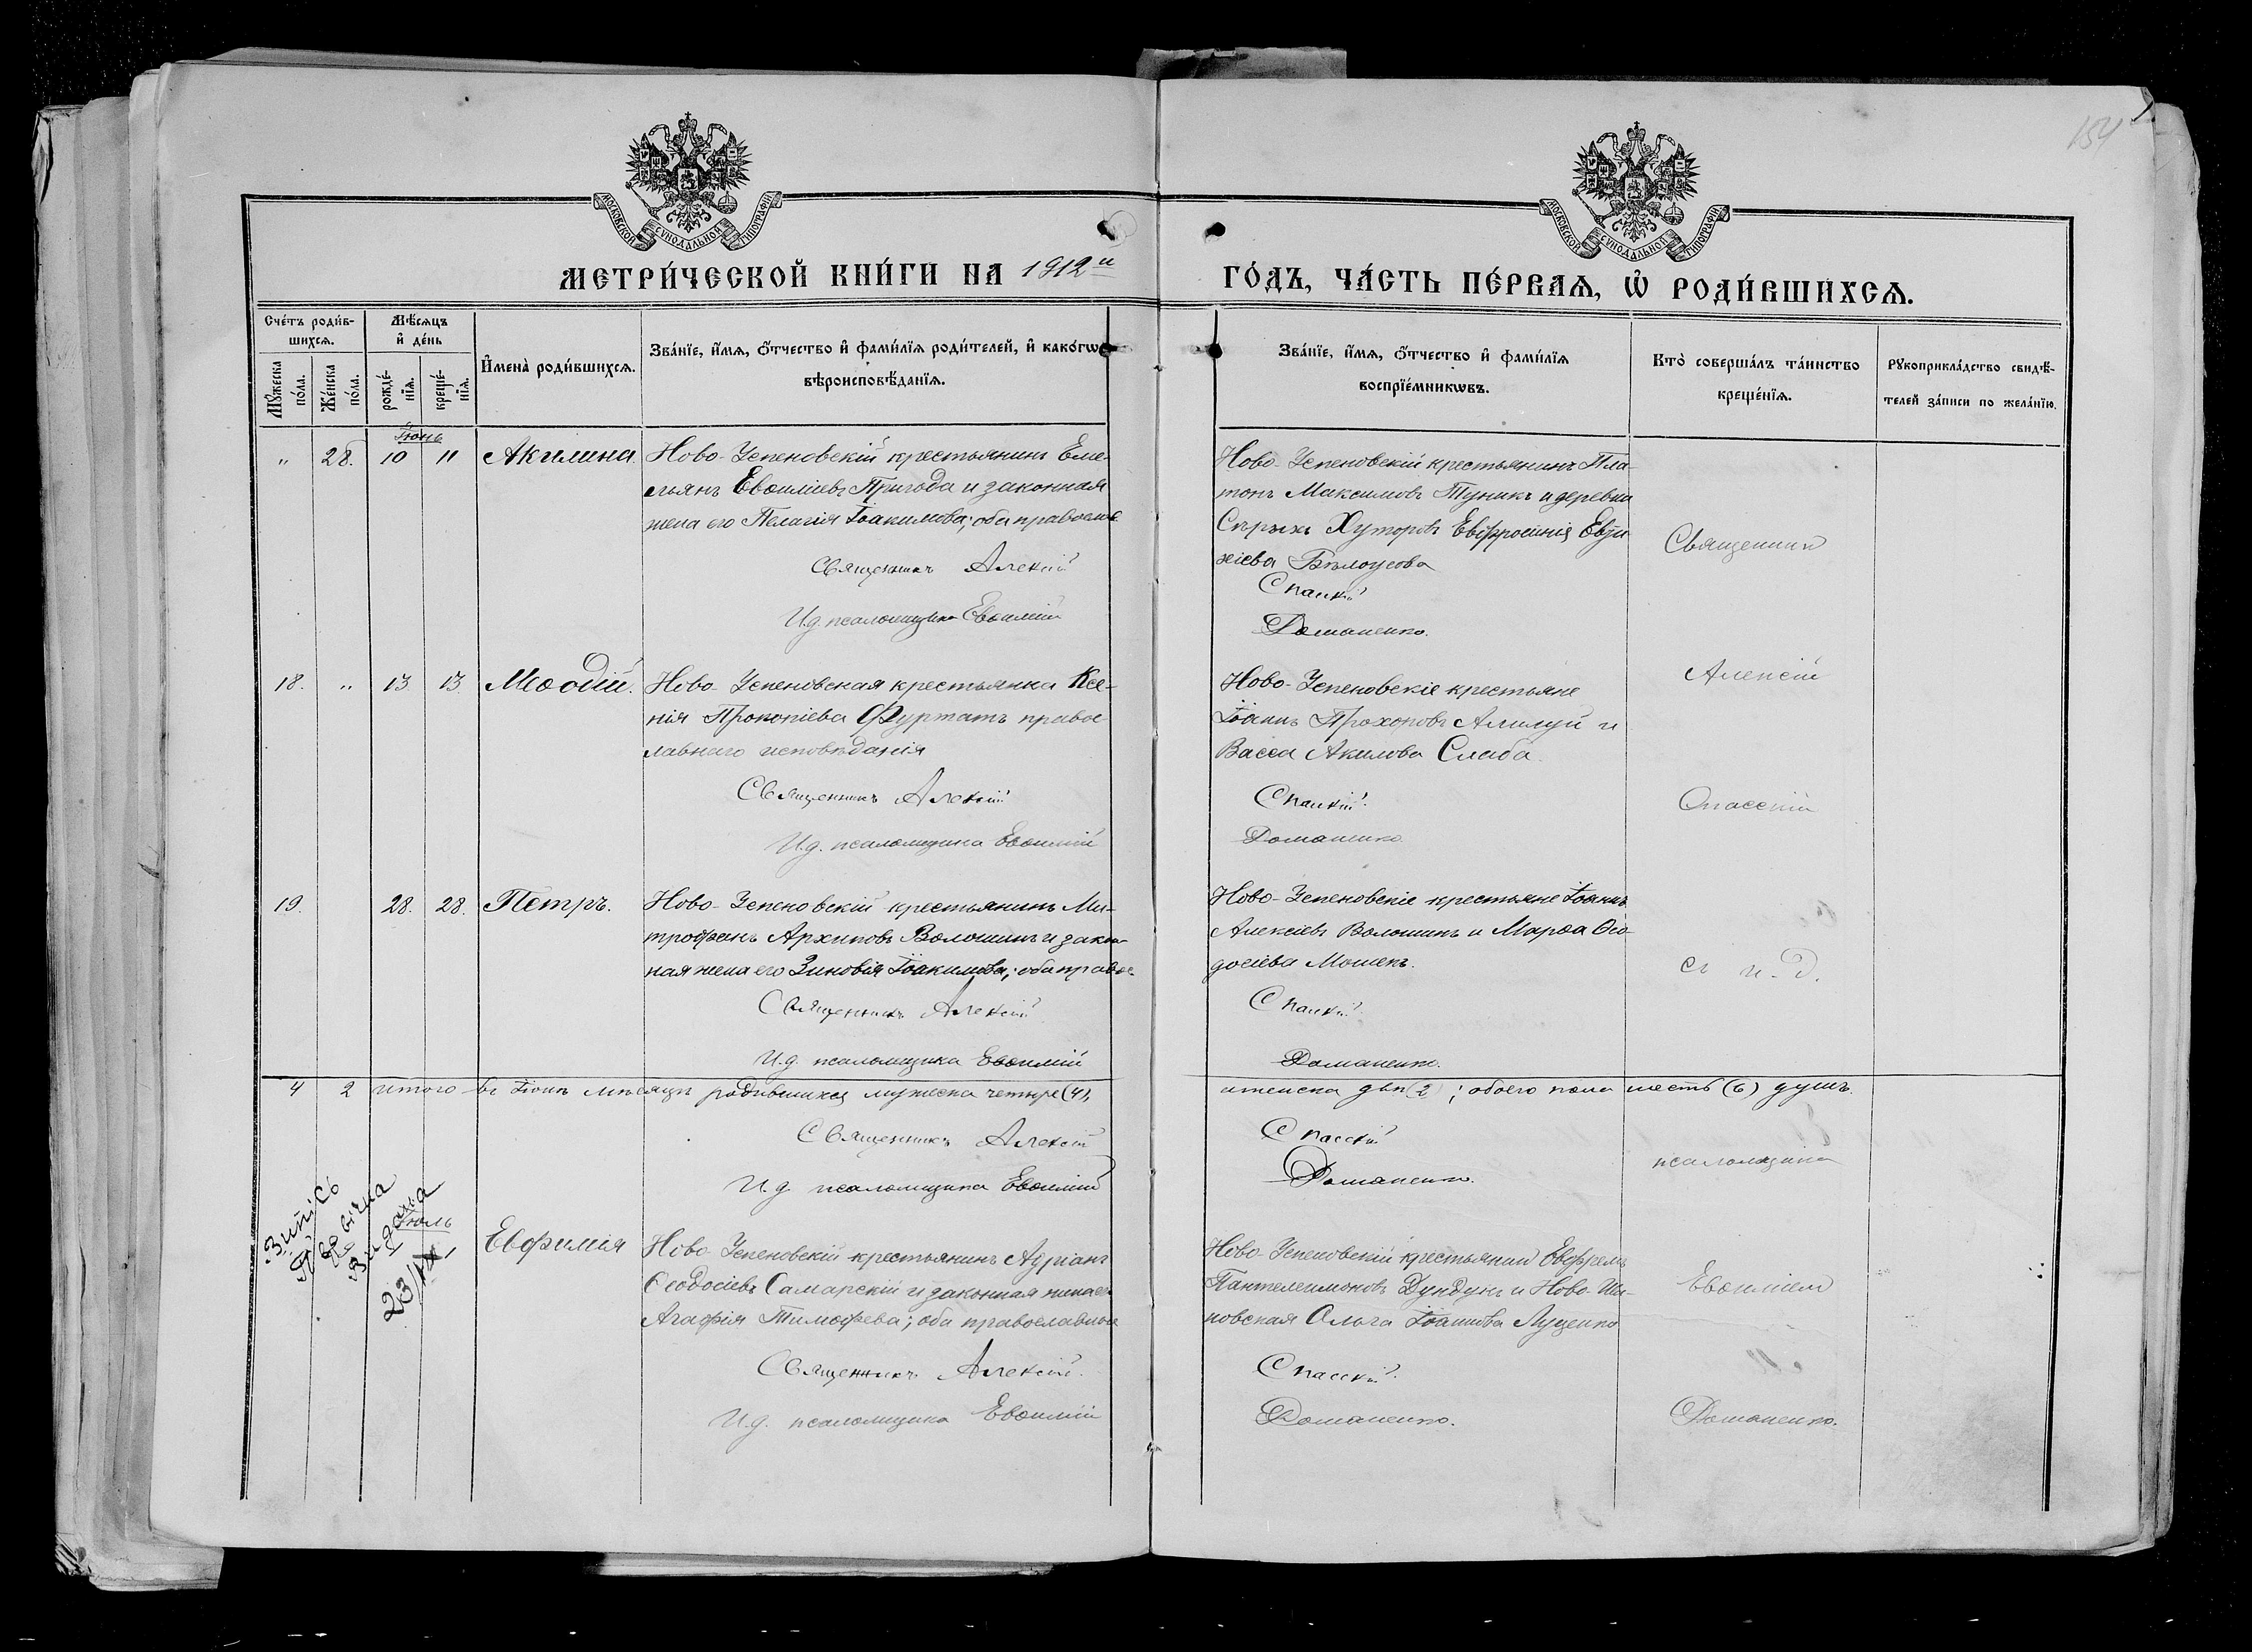 154
МОСКОВСКОЙ СѴНОДАЛЬНОЙ ТИПОГРАФІИ
МОСКОВСКОЙ СѴНОДАЛЬНОЙ ТИПОГРАФІИ
МЕТРИ́ЧЕСКОЙ КНИ́ГИ НА 1912й ГО́ДЪ, ЧА́СТЬ ПЕ́РВАѦ, Ѡ РОДИ́ВШИХСѦ.
Сче́тъ роди́в-
шихсѧ.
Мꙋ́жеска по́ла.
Же́нска по́ла.
Мѣ́сѧцъ
и де́нь
рожде́-
нїѧ.
креще́-
нїѧ.
Имена̀ роди́вшихсѧ.
Зва́нїе, и́мѧ, о́тчество и фами́лїѧ роди́телей, и како́гѡ
вѣроисповѣ́данїѧ.
Зва́нїе, и́мѧ, о́тчество и фами́лїѧ
воспрїе́мникѡвъ.
Кто̀ соверша́лъ та́инство
креще́нїѧ.
Рꙋкоприкла́дство свидѣ́-
телей за́писи по жела́нїю.
Іюнь
" 28. 10 11 Акилина. Ново-Успеновскій крестьянинъ Еме-
льянъ Евѳиміевъ Пригода и законная
жена его Пелагія Іоакимова; оба правосл.
Священникъ Алексій
И.д. псаломщика Евѳимій
Ново-Успеновскій крестьянинъ Пла-
тонъ Максимовъ Туникъ и деревни
Хуторовъ Евфросинія
Бѣлоусова
Спасскій
Доманенко.
Священник
18. " 13 13 Меѳодій. Ново-Успеновская крестьянка Ксе-
нія Прокопіева Фуртатъ правос-
лавнаго исповѣданія
Священникъ Алексій
И.д. псаломщика Евѳимій
Ново-Успеновскіе крестьяне
Іоаннъ Прохоровъ и
Васса Акимова Слаба
Спасскій.
Доманенко
Алексій
Спасскій
19. 28. 28. Петръ. Ново-Успеновскій крестьянинъ Ми-
трофанъ Архиповъ Волошинъ и закон-
ная жена его Зиновія Іоакимова; оба правос.
Священникъ Алексій
И.д. псаломщика Евѳимій
Ново-Успеновскіе крестьяне Іоаннъ
Алексіевъ Волошинъ и Марѳа Ѳео-
досіева Мошенъ.
Спасскій
Доманенко.
съ и.д.
4 2 итого въ Іюнѣ мѣсяцѣ родившихся мужеска четыре (4),
женска двѣ (2); обоего пола шесть (6) душъ.
Священникъ Алексій
И.д псаломщика Евѳимій
Спасскій
Доманенко.
псаломщика
23/IX
Іюль
1 Евфимія Ново-Успеновскій крестьянинъ Адріанъ
Ѳеодосіевъ Самарскій и законная жена его
Агафія Тимофеева; оба православные
Священникъ Алексій.
И.д. псаломщика Евѳимій
Ново-Успеновскій крестьянин Евфремъ
Пантелеимоновъ Дундукъ и Ново-
новская Ольга Іоаннова Луценко
Спасскій.
Доманенко.
Евѳиміем
Доманенко.